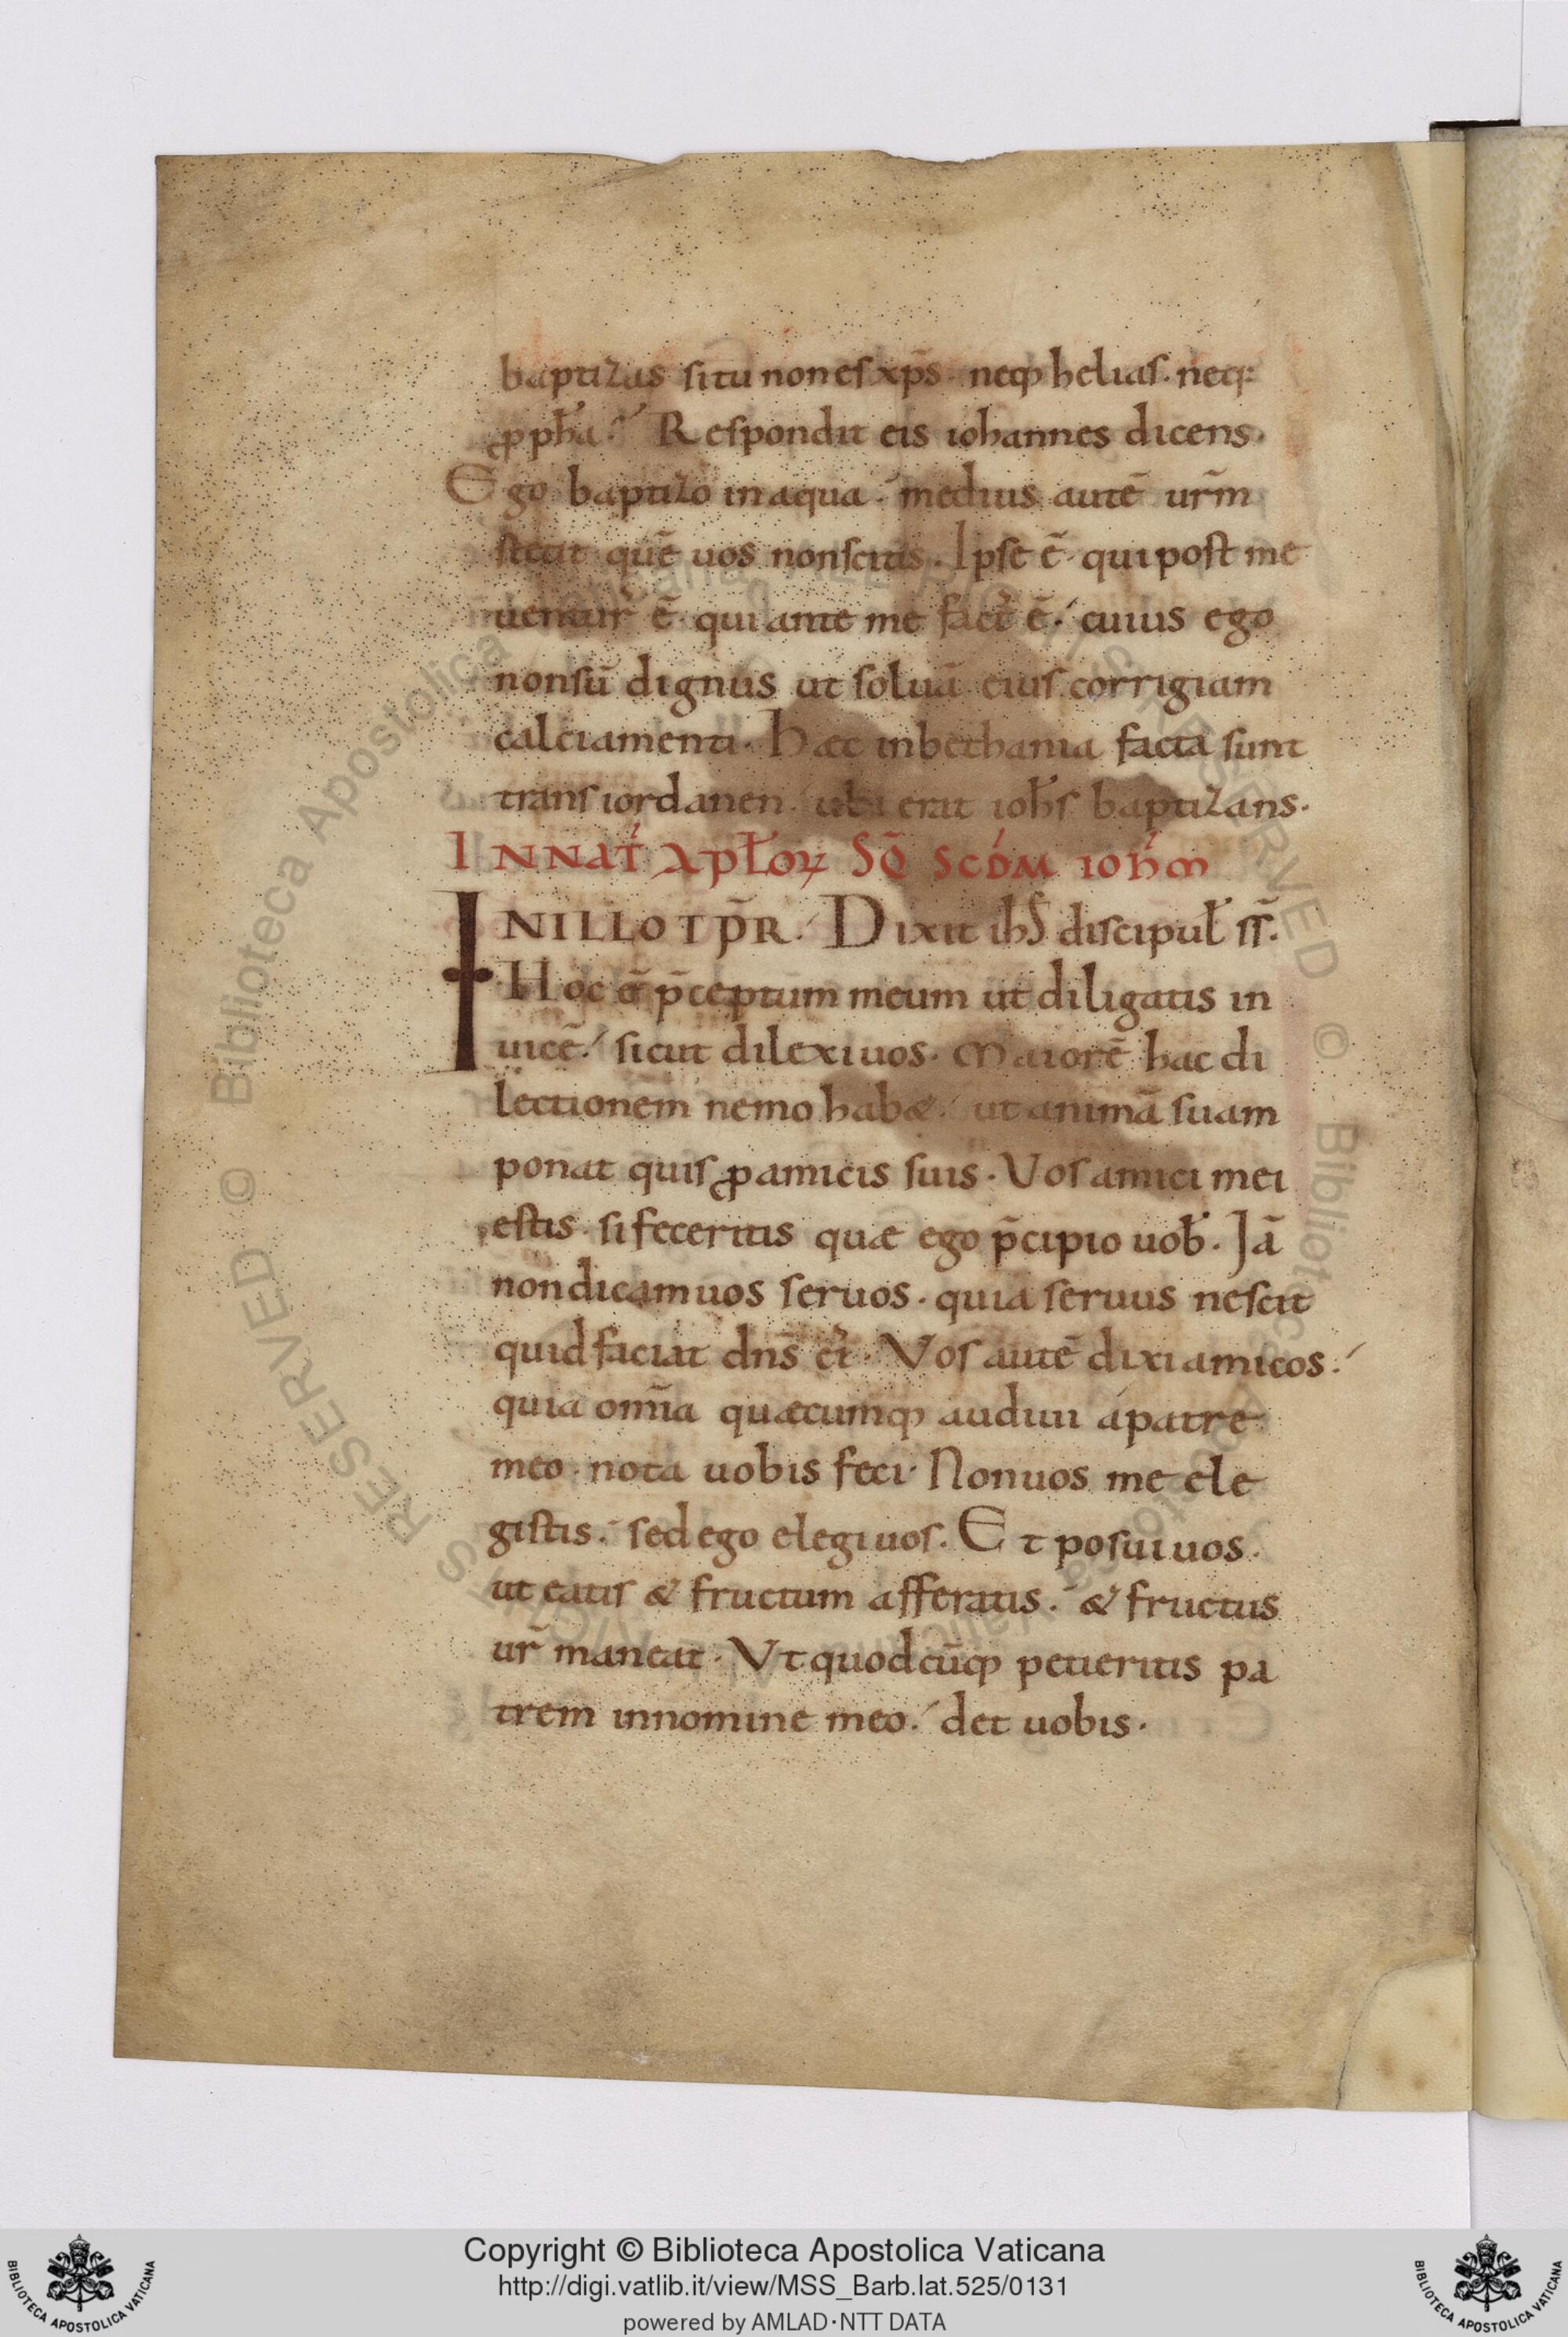 baptizas si tu non es xp̄s. neq; helias. neq;
ꝓpħa. Respondit eis iohannes dicens.
Ego baptizo in aqua. medius autē ur̄m
stetit quē uos nonscitis. Ipse ē. qui post me
uentur' ē. qui ante me fact' ē. cuius ego
nonsū dignus ut soluā eius corrigiam
calciamenti. Hæc inbethania facta sunt
trans iordanen. ubi erat ioh̄s baptizans.
IN NAT APŁOꝜ SQ̄ SCDM IOHM
IN ILLO TP̄R. Dixit ihS discipuł ss̄.
Hoc ē p̄ceptum meum ut diligatis in
uicē. sicut dilexi uos. Maiorē hac di
lectionem nemo habæ. ut animā suam
ponat quis ꝓ amicis suis. Vos amici mei
estis. si feceritis quæ ego p̄cipio uob. Iā
non dicam uos seruos. quia seruus nescit
quid faciat dn̄s ei'. Vos autē dixi amicos.
quia om̄ia quæcumq; audiui á patre
meo. nota uobis feci. Non uos me ele
gistis. sed ego elegi uos. Et posui uos.
ut eatis & fructum afferatis. & fructus
ur̄ maneat. Vt quodcūq; petieritis pa
trem innomine meo. det uobis.
RESERVED © Biblioteca Apostolica Vaticana
Copyright © Biblioteca Apostolica Vaticana
http://digi.vatlib.it/view/MSS_Barb.lat.525/0131
powered by AMLAD·NTT DATA
BIBLIOTECA APOSTOLICA VATICANA
BIBLIOTECA APOSTOLICA VATICANA